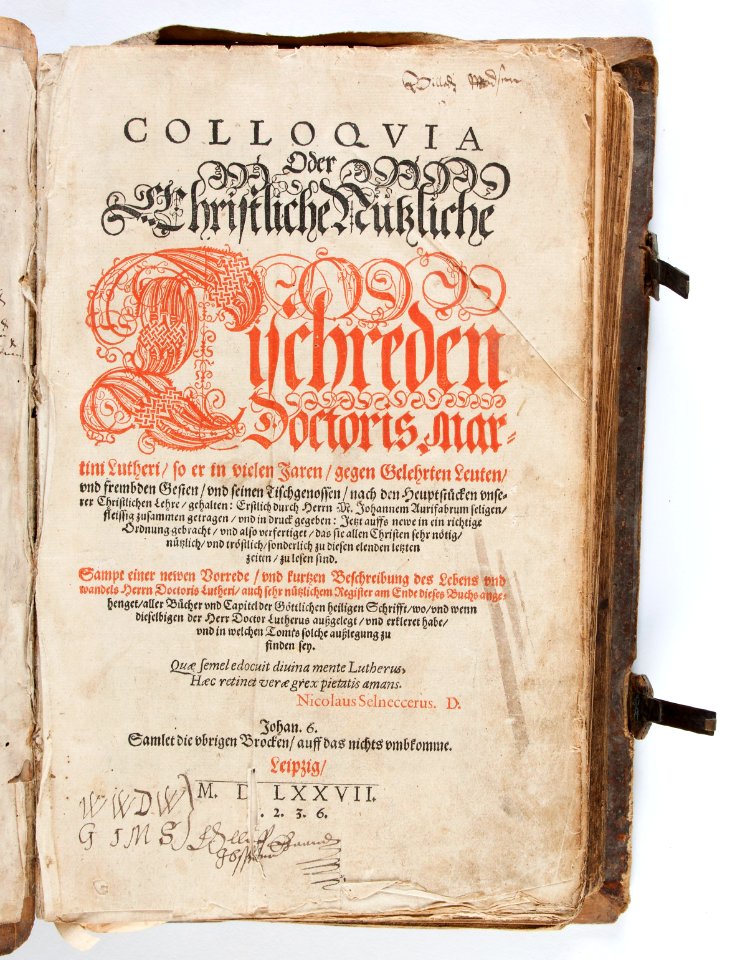 COLLOQVIA
Oder
Christliche Nützliche
Tischreden
Doctoris Mar-
tini Lutheri/ so er in vielen Jaren/ gegen Gelehrten Leuten/
vnd frembden Gesten/ vnd seinen Tischgenossen/ nach den Heuptstücken vnse-
rer Christlichen Lehre/ gehalten: Erstlich durch Herrn M. Johannem Aurifabrum seligen/
fleissig zusammen getragen/ vnd in druck gegeben: Jetzt auffs newe in ein richtige
Ordnung gebracht/ vnd also verfertiget/ das sie allen Christen sehr nötig/
nützlich/ vnd tröstlich/ sonderlich zu diesen elenden letzten
zeiten/ zu lesen sind.
Sampt einer newen Vorrede/ vnd kurtzen Beschreibung des Lebens vnd
wandels Herrn Doctoris Lutheri/ auch sehr nützlichem Register am Ende dieses Buchs ange-
henget/ aller Bücher vnd Capitel der Göttlichen heiligen Schrifft/ wo/ vnd wenn
dieselbigen der Herr Doctor Lutherus außgelegt/ vnd erkleret habe/
vnd in welchen Tomis solche außlegung zu
finden sey.
Quæ semel edocuit diuina mente Lutherus,
Hæc retinet veræ grex pietatis amans.
Nicolaus Selneccerus. D.
Johan. 6.
Samlet die vbrigen Brocken/ auff das nichts vmbkomme.
Leipzig/
M. D LXXVII.
. 2. 3. 6.
W W D W
G I M S